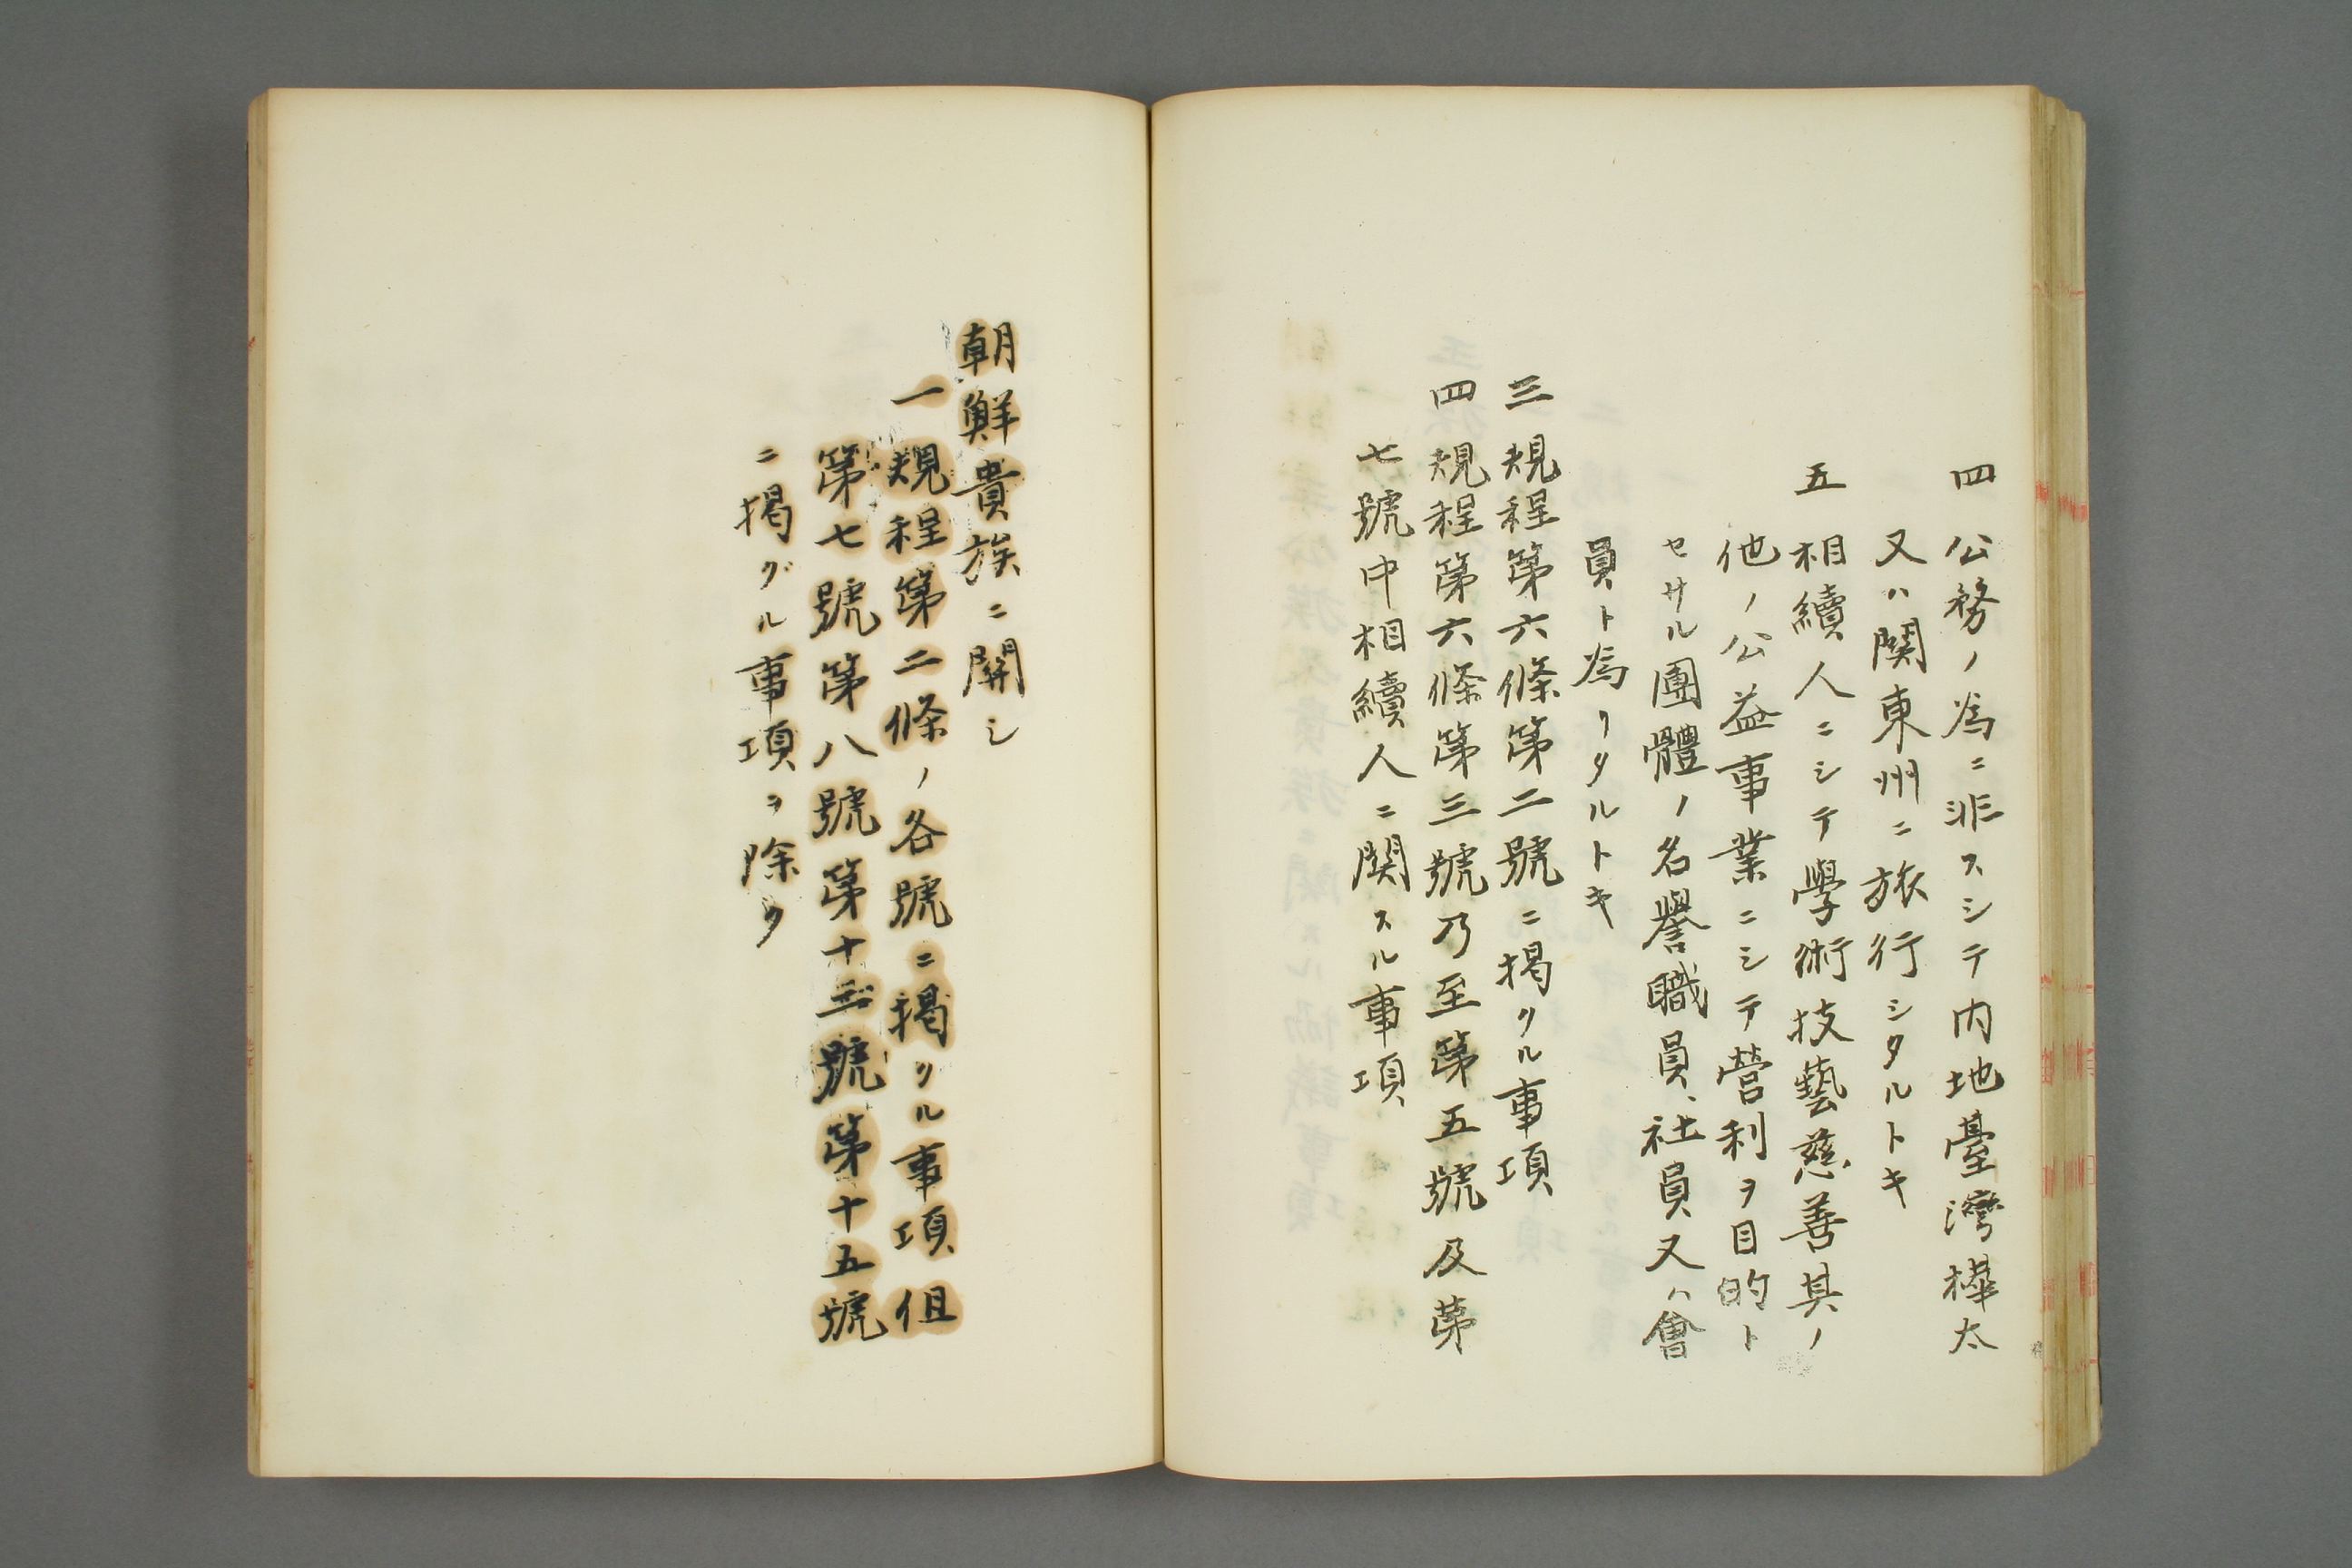 四 公務ノ為ニ非スシテ内地臺灣樺太
又ハ関東州ニ旅行シタルトキ
五 相續人ニシテ學術技藝慈善其ノ
他ノ公益事業ニシテ營利ヲ目的ト
セサル團體ノ名譽職員、社員又ハ會
員ト為リタルトキ
三 規程第六條第二號ニ掲クル事項
四 規程第六條第三號乃至第五號及第
七號中相續人ニ関スル事項
朝鮮貴族ニ関シ
一 規程第二條ノ各號ニ掲クル事項但
第七號第八號第十三號第十五號
ニ掲グル事項ヲ除ク